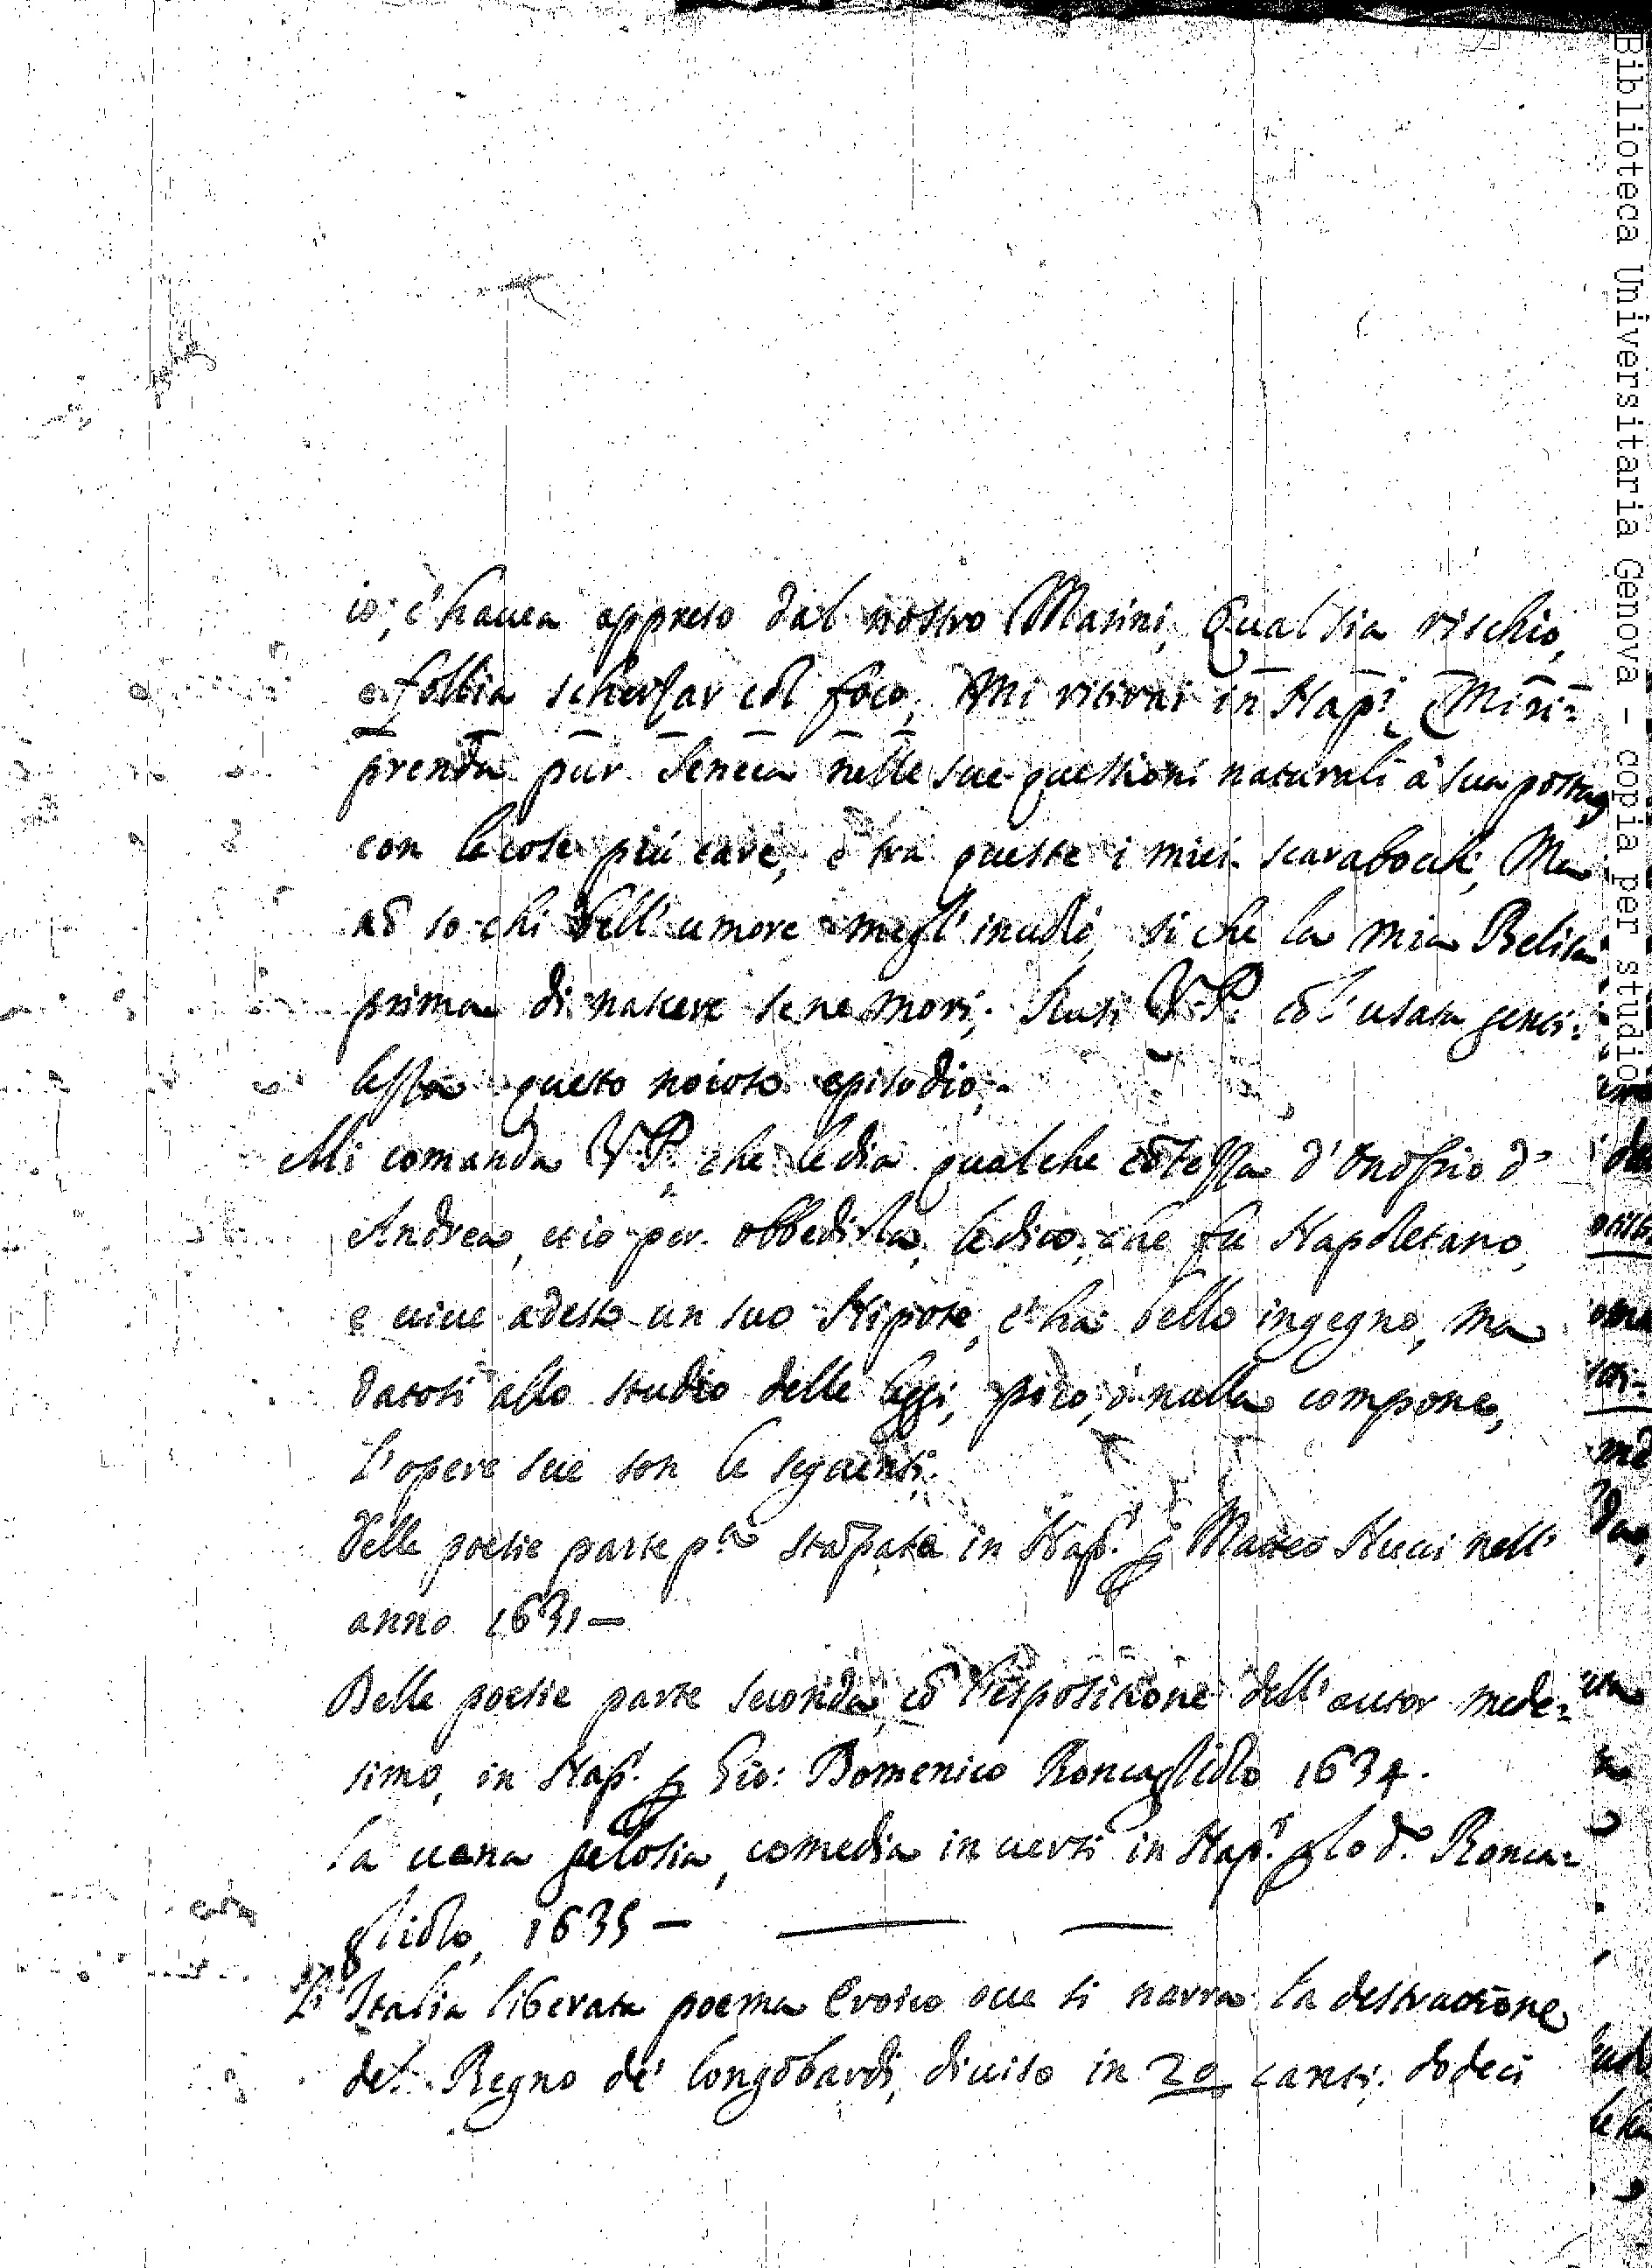 io, c'hauea appreso dal nostro Marini, Qual sia rischio,
e follia scherzar col foco, Mi ritirai in Nap.i, Miri=
prenda pur Seneca nelle sue questioni naturali à sua posta,
con le cose più care, e tra queste i miei scarabocchi, Ma
nō so chi dell'umore megl' inuolò, si che la mia Belisa
prima di nascere se ne morì. Scusi V.P. cō l'usata genti=
lezza questo noioso episodio.
Mi comanda V.P. che le dia qualche cōtezza d'Onofrio d'
Andrea, et io per obbedirla, le dico, che fu Napoletano,
e viue adesso un suo Nipote, c'ha bello ingegno, ma
datosi allo studio delle leggi, poco, ò nulla compone,
L'opere sue son le seguenti.
Delle poesie parte p.a stāpata in Nap. p Matteo Nucci nell'
anno 1631 —
Delle poesie parte seconda, cō l'espositione dell'autor mede=
simo, in Nap. p Gio: Domenico Roncagliolo 1634.
La uana gelosia, comedia in uersi in Nap. p lo d.o Ronca=
gliolo, 1635 —
L'Italia liberata poema Eroico oue si narra la destruttione
del Regno de' longobardi, diuiso in 20 canti. dodeci
Biblioteca Universitaria Genova - copia per studio